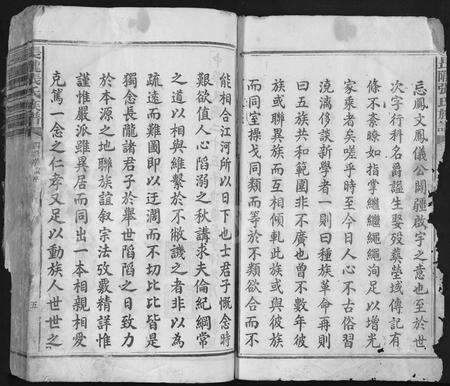 長隴張氏族譜
忘鳳文鳳儀公闢疆啟宇之意也至於世
次字行科名爵諡生娶歿葬塋域傳記有
條不紊瞭如指掌繼繼繩繩洵足以增光
家乘者矣嗟乎時至今日人心不古俗習
澆漓侈談新學者一則曰種族革命再則
曰五族共和範圍非不廣也曾不數年彼
族或聯異族而互相軋此族或與彼族
而同室操戈同類而等於不類欲合而不
能相合江河所以日下也士君子慨念時
艱欲值人心陷溺之秋講求夫倫紀綱常
之道以相與維繫於不敝譏之者非以為
疏遠而難圖即以迂濶而不切比比皆是
獨念長隴諸君子於舉世陷陷之日致力
於本源之地聯族誼敘宗法攷覈精詳惟
謹惟嚴派雖異居而同出一本相親相愛
克篤一念之仁孝又足以動族人世世之
長隴張氏族譜
五